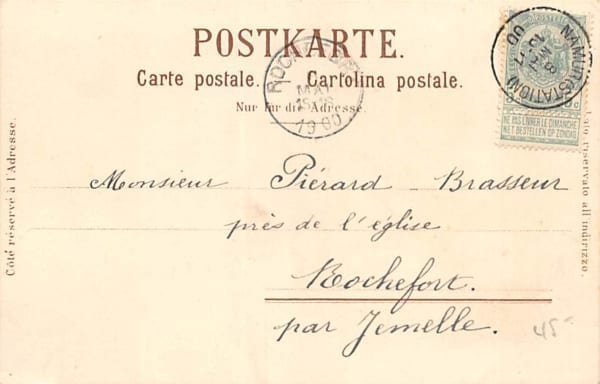 POSTKARTE.
Carte postale. Cartolina postale.
Nur für die Adresse.
Monsieur Piérard - Brasseur
près de l'église
Rochefort.
par Jemelle.
Côté réservé à l'Adresse.
Lato riservato all indirizzo.
NAMUR (STATION)
MAI
00
ROCHEFORT
MAI
1900
NE PAS LIVRER LE DIMANCHE
NIET BESTELLEN OP ZONDAG
45-